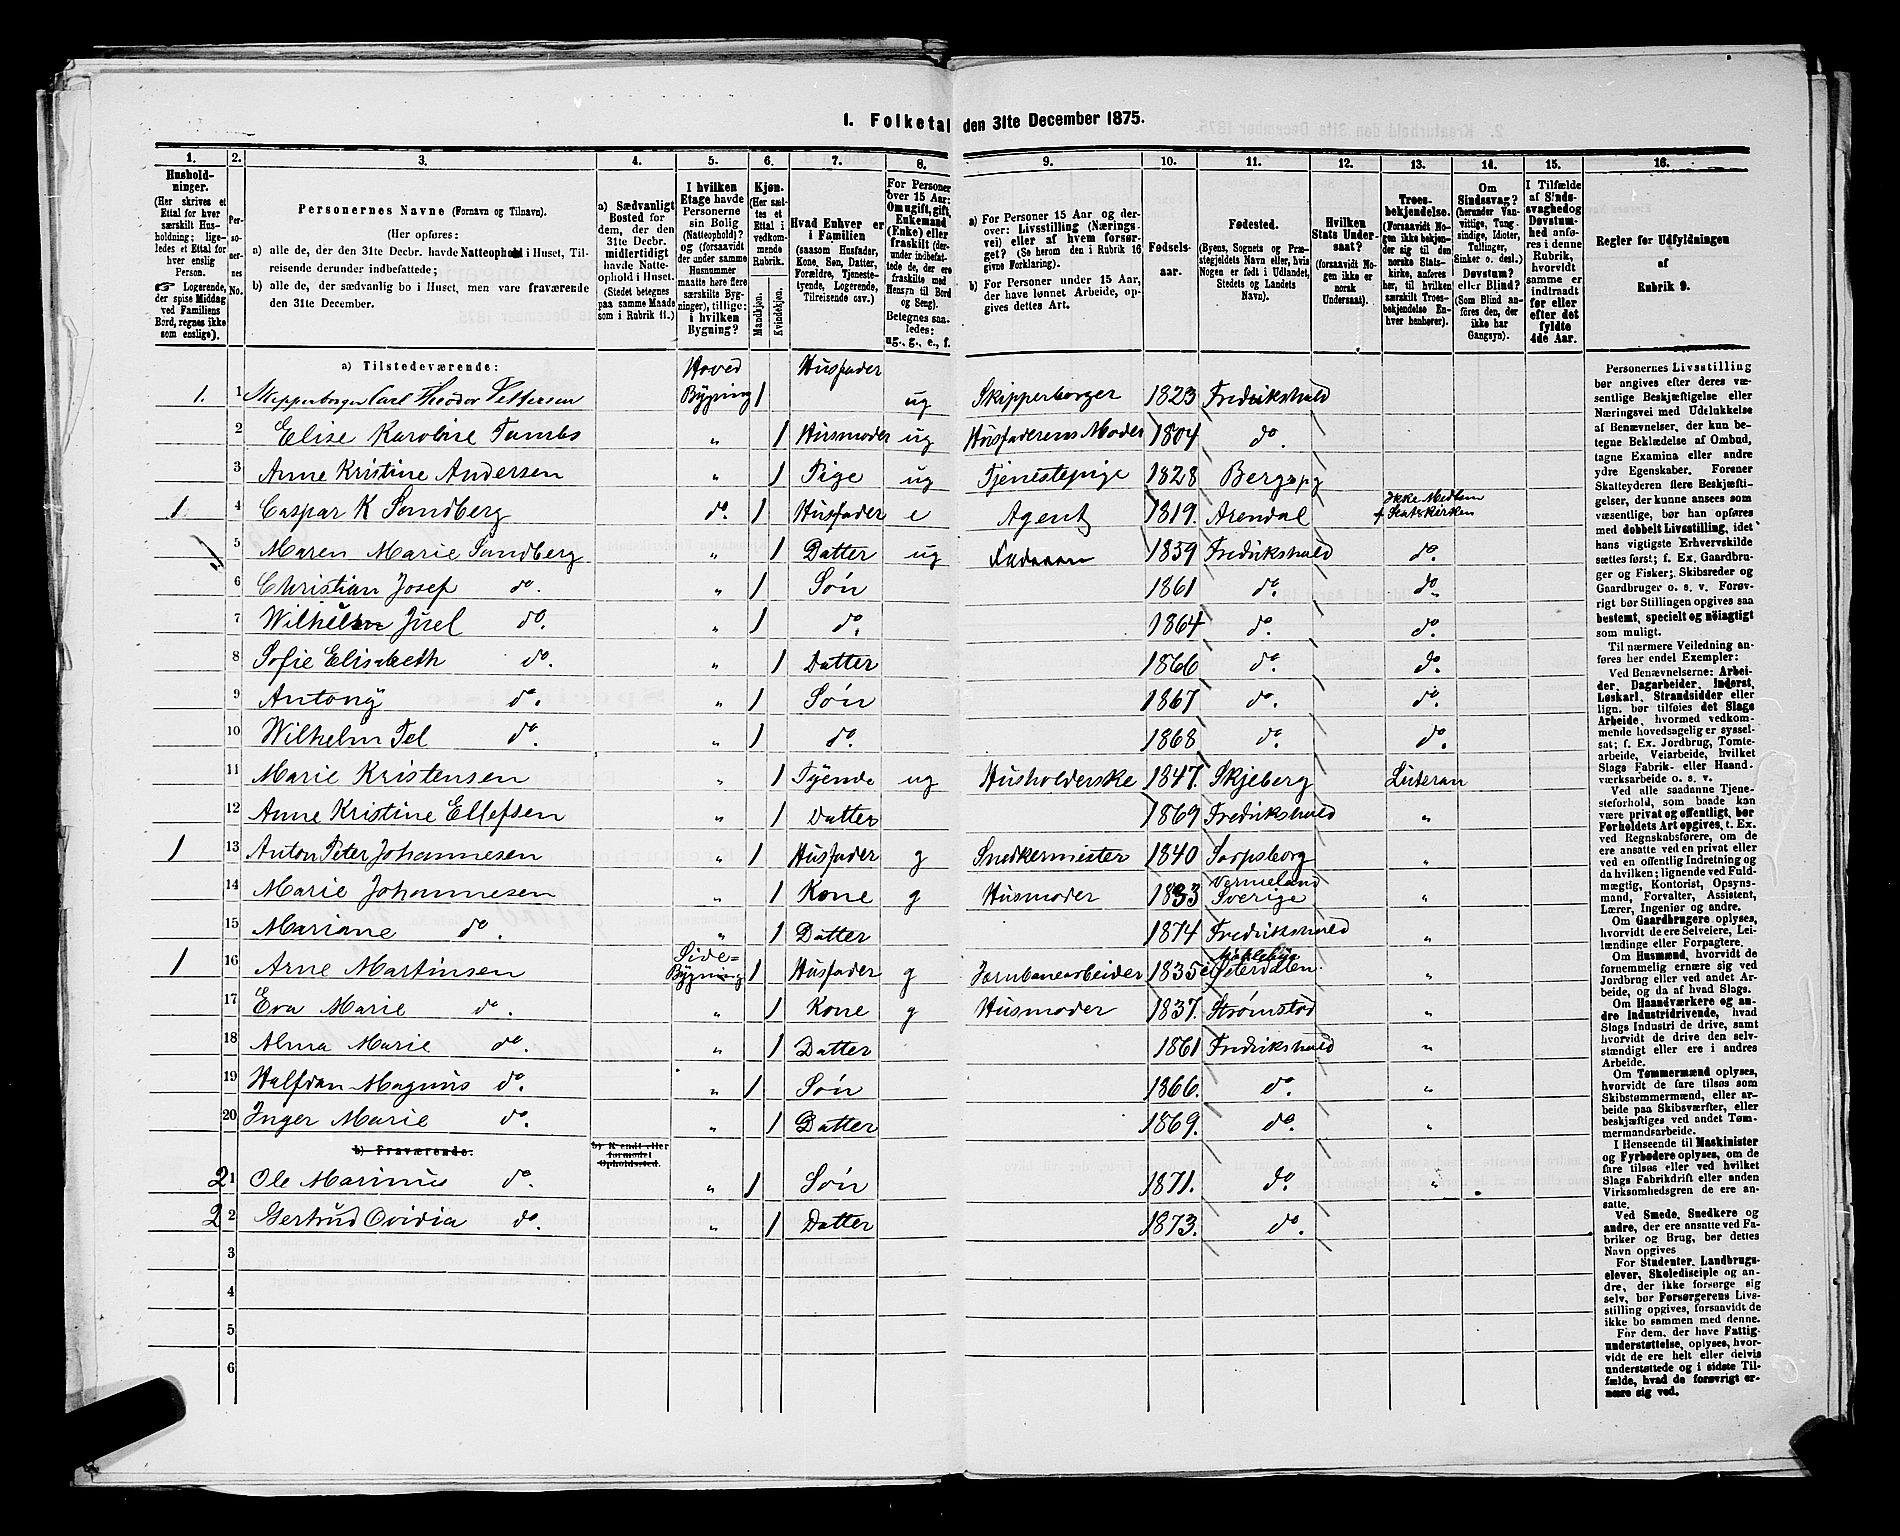 1. Folketal den 31te December 1875.
1. 2. 3. 4. 5. 6. 7. 8. 9. 10. 11. 12. 13. 14. 15. 16.
Hushold-
ninger.
(Her skrives et
Ettal for hver
særskilt Hus-
holdning; lige-
ledes et Ettal for
hver enslig
Person.
☞ Logerende,
der spise Middag
ved Familiens
Bord, regnes ikke
som enslige).
Per-
so-
ner-
nes
No.
Personernes Navne (Fornavn og Tilnavn).
(Her opføres:
a) alle de, der den 31te Decbr. havde Natteophold i Huset, Til-
reisende derunder indbefattede;
b) alle de, der sædvanlig bo i Huset, men vare fraværende
den 31te December.
a) Sædvanligt
Bosted for
dem, der den
31te Decbr.
midlertidigt
havde Natte-
ophold i Huset.
(Stedet betegnes
paa samme Maade
som i Rubrik 11.)
I hvilken
Etage havde
Personerne
sin Bolig
(Natteophold)?
og (forsaavidt
der under samme
Husnummer
maatte høre flere
særskilte Byg-
ninger), tillige:
i hvilken
Bygning?
Kjøn.
(Her sæt-
tes et
Ettal i
vedkom-
mende
Rubrik.
Mandkjøn.
Kvindekjøn.
Hvad Enhver er
i Familien
(saasom Husfader,
Kone, Søn, Datter,
Forældre, Tjeneste-
tyende, Logerende,
Tilreisende osv.)
For Personer
over 15 Aar:
Om ugift, gift,
Enkemand
(Enke) eller
fraskilt (der-
under indbefat-
tede de, der ere
fraskilte med
Hensyn til Bord
og Seng).
Betegnes saa-
ledes:
ug., g., e., f.
a) For Personer 15 Aar og der-
over: Livsstilling (Nærings-
vei) eller af hvem forsør-
get? (Se herom den i Rubrik 16
givne Forklaring).
b) For Personer under 15 Aar,
der have lønnet Arbeide, op-
gives dettes Art.
Fødsels-
aar.
Fødested.
(Byens, Sognets og Præ-
stegjeldets Navn eller, hvis
Nogen er født i Udlandet,
Stedets og Landets
Navn).
Hvilken
Stats Under-
saat?
(forsaavidt No-
gen ikke er
norsk
Undersaat).
Troes-
bekjendelse.
(Forsaavidt No-
gen ikke bekjen-
der sig til den
norske Stats-
kirke, anføres
her, til hvilken
særskilt Troes-
bekjendelse En-
hver henhører).
Om
Sindssvag?
(herunder Van-
vittige, Tung-
sindige, Idioter,
Tullinger,
Sinker o. desl.)
Døvstum?
eller Blind?
(Som Blind an-
føres den, der
ikke har
Gangsyn).
I Tilfælde
af Sinds-
svaghed og
Døvstum-
hed anfø-
res i denne
Rubrik,
hvorvidt
samme er
indtraadt
før eller
efter det
fyldte
4de Aar.
Regler for Udfyldningen
af
Rubrik 9.
a) Tilstedeværende:
1. 1 Skipperborger Carl Theodor Pettersen Hoved Bygning 1 Husfader ug Skipperborger 1823 Fredrikshald
2 Elise Karoline Tambs „ 1 Husmoder ug Husfaderens Moder 1804 do.
3 Anne Kristine Andersen „ 1 Pige ug Tjenestepige 1828 Berg
1 4 Caspar K Sandberg do. 1 Husfader e Agent 1819. Arendal Ikke Medlem f Statskirken
5 Maren Marie Sandberg „ 1 Datter ug 1839 Fredrikshald do.
6 Christian Josef do. „ 1 Søn 1861 do. do.
7 Wilhelm Juel do. „ 1 do. 1864 do. do.
8 Sofie Elisabeth do. „ 1 Datter 1866 do. do.
9 Antony do. „ 1 Søn 1867 do. do.
10 Wilhelm Tel do. „ 1 do. 1868 do. do.
11 Marie Kristensen „ 1 Tyende ug Husholderske 1847. Skjeberg Luteran
12 Anne Kristine Ellefsen „ 1 Datter 1869 Fredrikshald „
1 13 Anton Peter Johannesen „ 1 Husfader g Snedkermester 1840 Sarpsborg „
14 Marie Johannesen „ 1 Kone g Husmoder 1833 Vermeland Sverige „
15 Mariane do. „ 1 Datter 1874 Fredrikshald „
1 16 Arne Martinsen Side=Bygning 1 Husfader g Jernbanearbeider 1835 „
17 Eva Marie do. „ 1 Kone g Husmoder 1837. Strømstad „
18 Alma Marie do. „ 1 Datter 1861 Fredrikshald „
19 Halfdan Magnus do. „ 1 Søn 1866. do. „
20 Inger Marie do. „ 1 Datter 1869. do. „
b) Fraværende. b) Kjendt eller
formodet
Opholdssted.
21 Ole Marinus do. „ 1 Søn 1871. do. „
22 Gertrud Ovidia do. „ 1 Datter 1873. do.
3
4
5
6
Personernes Livsstilling
bør angives efter deres væ-
sentlige Beskjæftigelse eller
Næringsvei med Udelukkelse
af Benævnelser, der kun be-
tegne Beklædelse af Ombud,
tagne Examina eller andre
ydre Egenskaber. Forener
Skatteyderen flere Beskjæfti-
gelser, der kunne ansees som
væsentlige, bør han opføres
med dobbelt Livsstilling, idet
hans vigtigste Erhvervskilde
sættes først; f. Ex. Gaardbru-
ger og Fisker; Skibsreder og
Gaardbruger o. s. v. Forøv-
rigt bør Stillingen opgives saa
bestemt, specielt og nøiagtigt
som muligt.
Til nærmere Veiledning an-
føres her endel Exempler:
Ved Benævnelserne: Arbei-
der, Dagarbeider, Inderst,
Løskarl, Strandsidder eller
lign. bør tilføies det Slags
Arbeide, hvormed vedkom-
mende hovedsagelig er syssel-
sat; f. Ex. Jordbrug, Tomte-
arbeide, Veiarbeide, hvilket
Slags Fabrik- eller Haand-
værksarbeide o. s. v.
Ved alle saadanne Tjene-
steforhold, som baade kan
være privat og offentligt, bør
Forholdets Art opgives, t. Ex.
ved Regnskabsførere, om de
ere ansatte ved en privat eller
ved en offentlig Indretning og
da hvilken; lignende ved Fuld-
mægtig, Kontorist, Opsyns-
mand, Forvalter, Assistent,
Lærer, Ingeniør og andre.
Om Gaardbrugere oplyses,
hvorvidt de ere Selveiere, Lei-
lændinge eller Forpagtere.
Om Husmænd, hvorvidt de
fornemmelig ernære sig ved
Jordbrug eller ved andet Ar-
beide, og da af hvad Slags.
Om Haandværkere og an-
dre Industridrivende, hvad
Slags Industri de drive, samt
hvorvidt de drive den selv-
stændigt eller ere i andres
Arbeide.
Om Tømmermænd oplyses,
hvorvidt de fare tilsøs som
Skibstømmermænd, eller ar-
beide paa Skibsværfter, eller
beskjæftiges ved andet Tøm-
mermandsarbeide.
I Henseende til Maskinister
og Fyrbødere oplyses, om de
fare tilsøs eller ved hvilket
Slags Fabrikdrift eller anden
Virksomhedsgren de ere an-
satte.
Ved Smede, Snedkere og
andre, der ere ansatte ved Fa-
briker og Brug, bør dettes
Navn opgives
For Studenter, Landbrugs-
elever, Skoledisciple og an-
dre, der ikke forsørge sig
selv, bør Forsørgerens Livs-
stilling opgives, forsaavidt de
ikke bo sammen med denne.
For dem, der have Fattig-
understøttelse, oplyses, hvor-
vidt de ere helt eller delvis
understøttede og i sidste Til-
fælde, hvad de forøvrigt er-
nære sig ved.